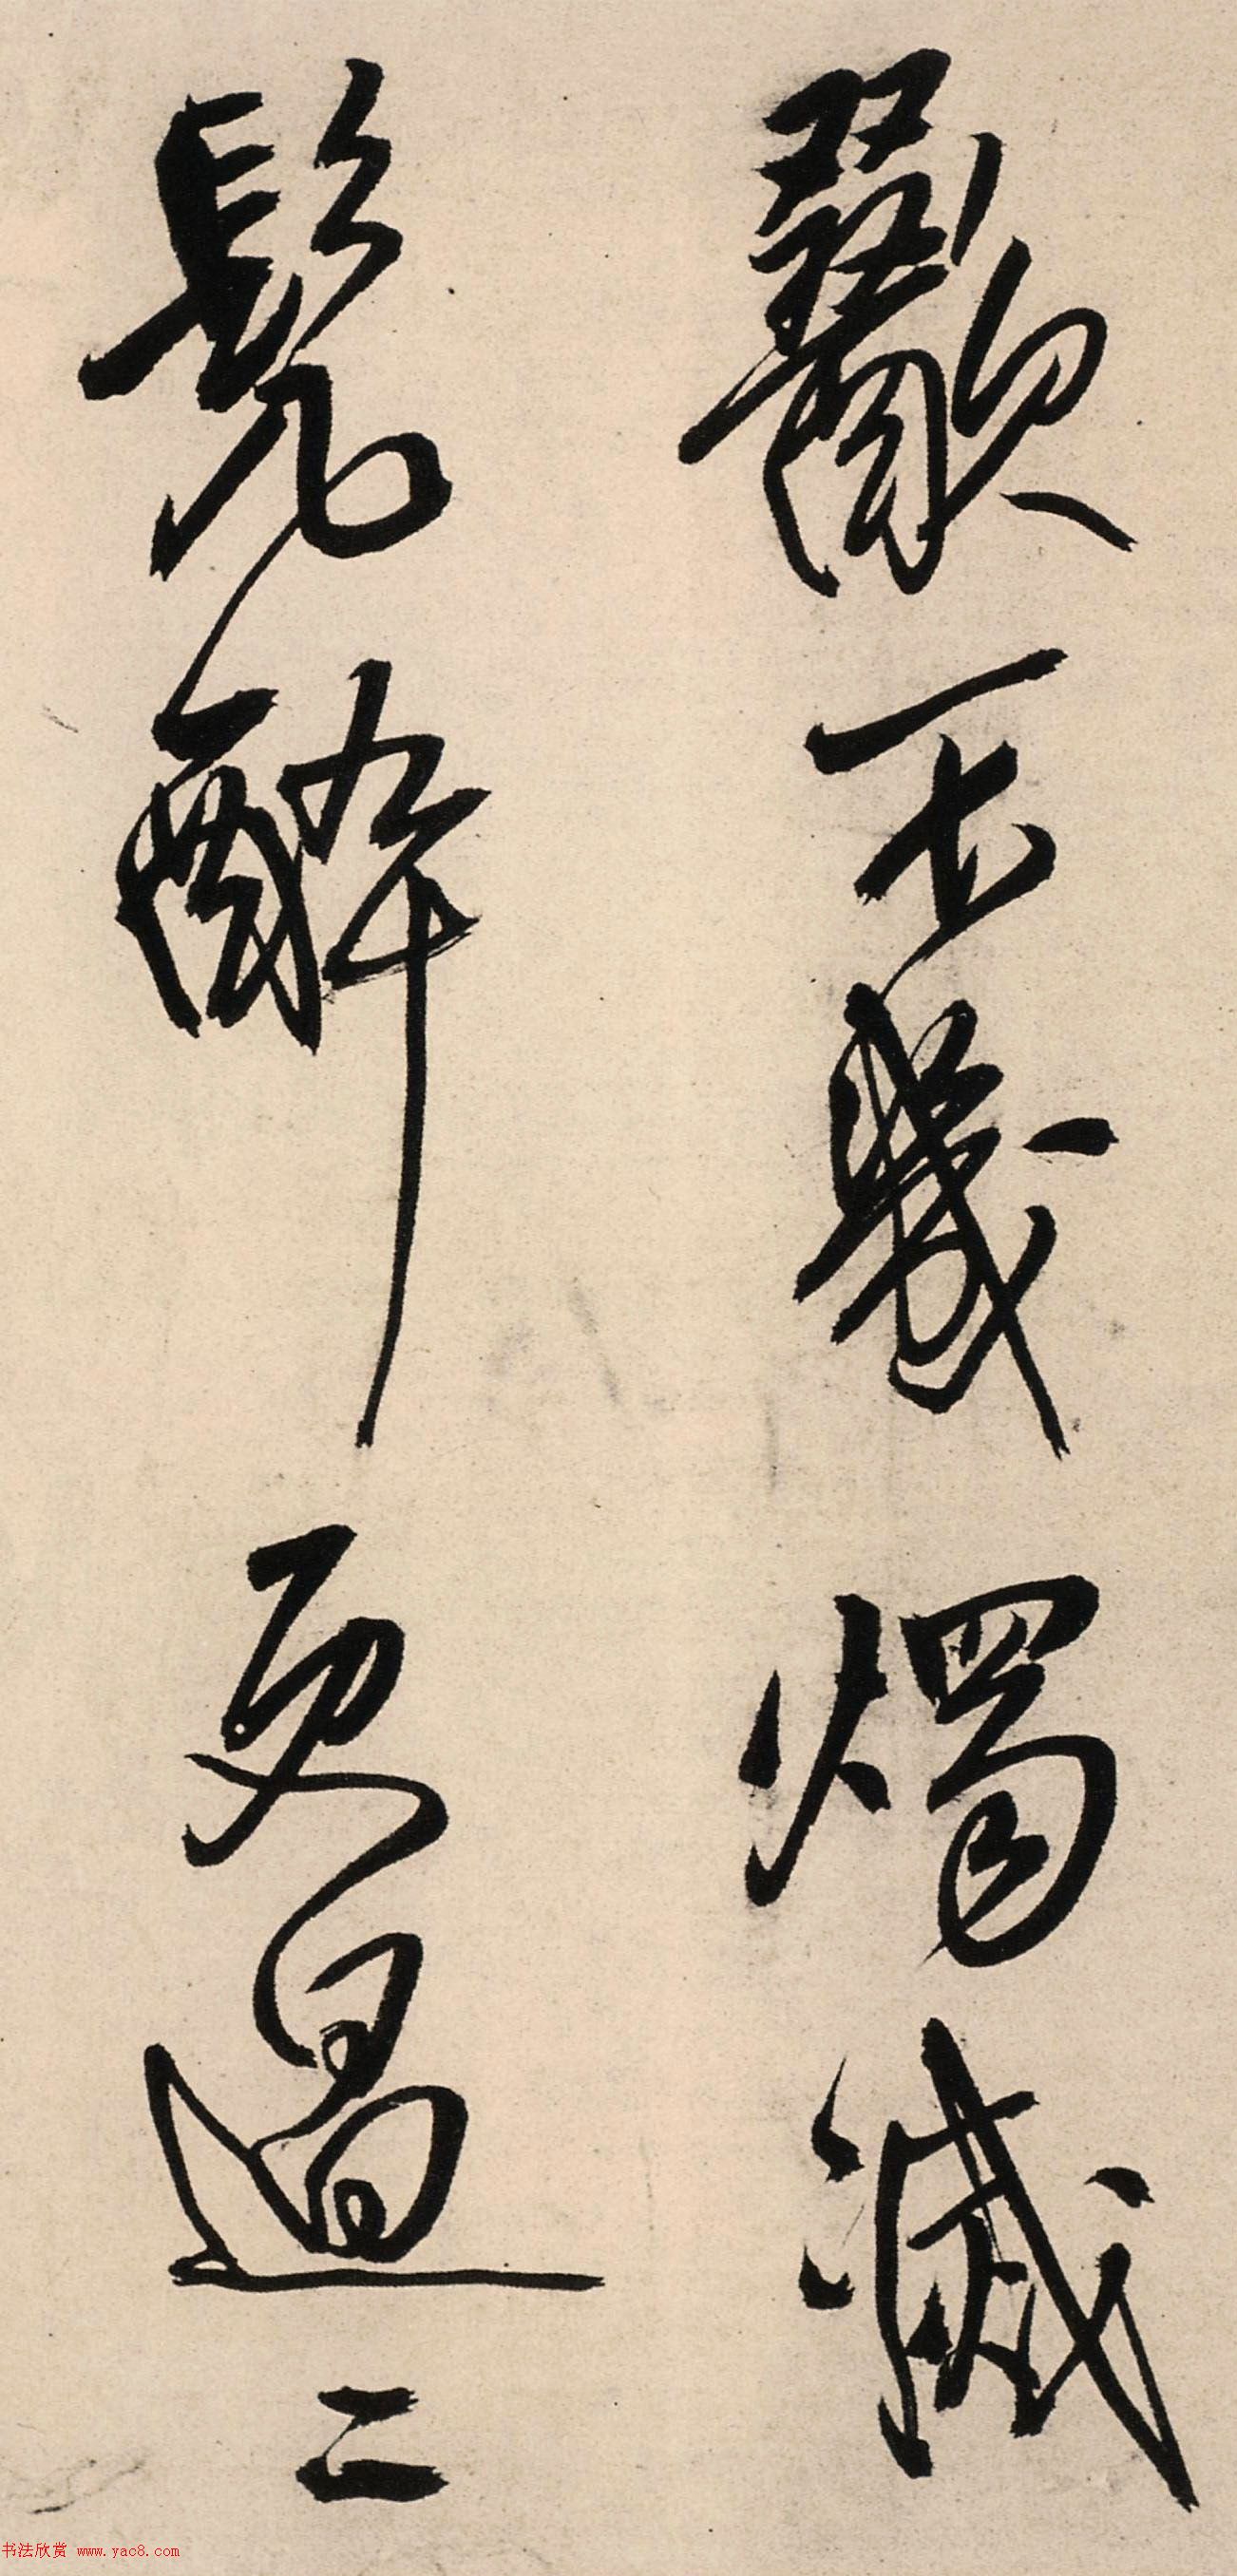 歠不幾燭滅
髡醉更過二
书法欣赏 www.yac8.com